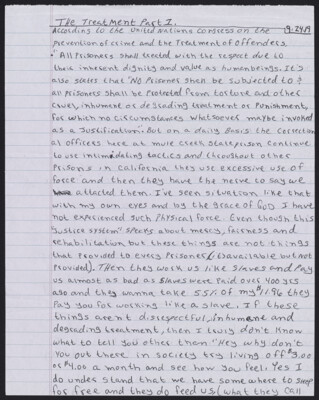 The Treatment Part I.
According to the United Nations Congress on the
prevention of crime and the Treatment of offenders.
"All Prisoners shall treated with the respect due to
their inherent dignity and value as human beings. It's
also states that "No Prisoner shen be subjected to &
all prisoners shall be Protectal from torture and other
cruel, inhumane or degrading treatment or Punishment,
for which no circumstances whatsoever maybe invoked
as a Justification. But on a daily basis the correction
al officers here at mule Creek State prison continue
to use intimidating tactics and throughout other
Prisons in California they use excessive use of
force and then they have the nerve to say we
attacted them. I've seen situation like that
with my own eyes and by the grace of God I have
not experienced such Physical force. Even though this
"Justice system" speaks about mercy, fairness and
rehabilitation but these things are not things
that provided to every Prisoner (is available but not
Provided). Then they work us like slaves and Pay
us almost as bad as slaves were Paid over 400 yrs
ago and they wanna take 55% of my $11.96 they
Pay you for working like a slave. If these
things aren't disrespectful, inhumane and
degrading treatment, then I truly don't know
what to tell you other than "Hey why don't
you out there in society try living off $3.00
or $4.00 a month and see how you feel. Yes I
do under stand that we have some where to sleep
for free and they do feed us (what they call